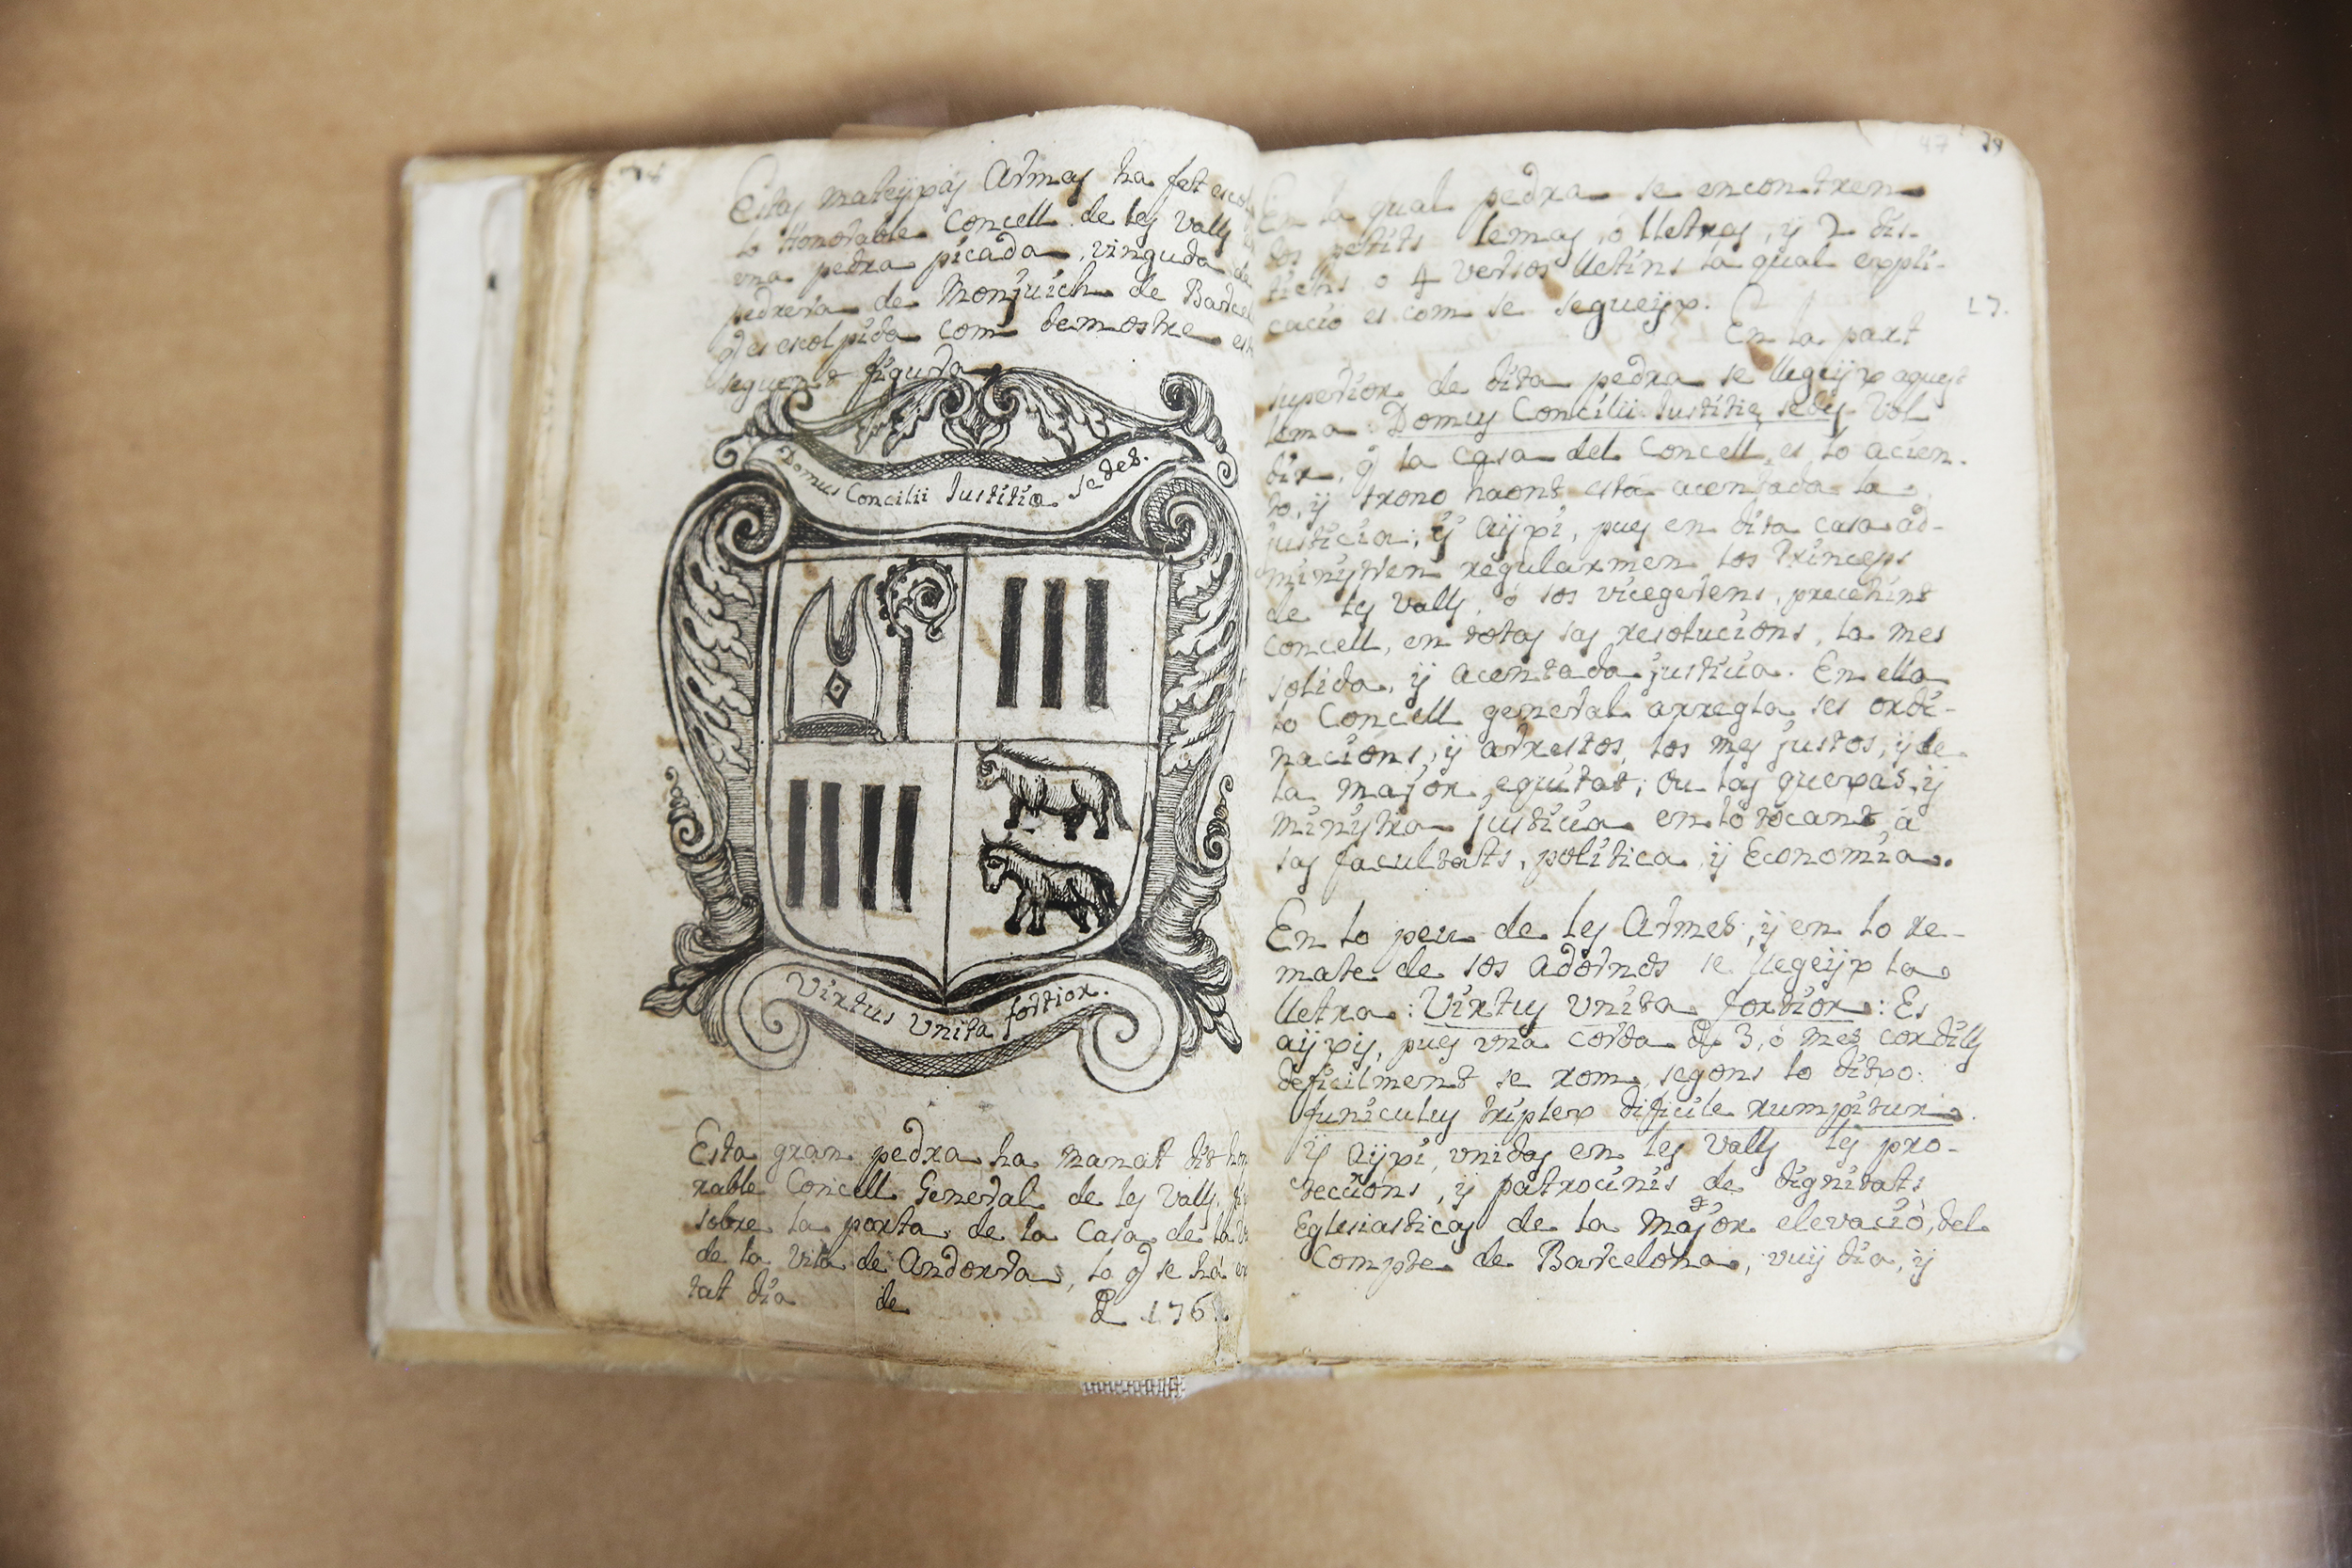 Estas mateijxas Armas ha fet escol
lo Honorable Concell de les Valls
vna pedra picada, vinguda de
pedrera de Monjuich de Barcel
q̃ es escolpida com demostre est
seguent figura
Domus Concilii Iustitiæ sedes.
Virtus Unita fortior.
Esta gran pedra ha manat dit hon
rable Concell General de les Valls,
sobre la porta de la Casa de la
de la Vila de Andorra, lo q̃ se ha
tat dia de 176
47
En la qual pedra se encontren
dos petits lemas, ó lletras, ij 2 dis-
tichs o 4 versos lletins la qual expli-
cació es com se segueijx.
En la part
superior de dita pedra se llegeijx aquest
lema Domus Concilii Iustitiæ sedes. Vol
dir, q̃ la casa del Concell es lo acien-
to, ij trono haont está acentada la
justicia; ij Aijxi, pues en dita casa ad-
ministren regularmen los Princeps
de les Valls, ó sos vicegerens, precehint
Concell, en totas sas resolucions, la mes
solida, ij acentada justicia. En ella
lo Concell general arregla ses ordi-
nacions, ij arrestos, los mes justos, ij de
la major equitat; Ou las quexas, ij
ministra justicia en lo tocant á
sas facultats, politica, ij Economia.
En lo peu de les Armes, ij en lo re-
mate de sos adornos se llegeijx la
lletra: Virtus vnita fortior: Es
aijxis, pues vna corda de 3, ó mes cordills
deficilment se rom, segons lo
funiculus triplex dificile rumpitur.
ij Aijxi, vnidas en les Valls les pro-
teccions, ij patrocinis de dignitats
Eglesiasticas de la major elevació, del
Compte de Barcelona, vuij dia, ij